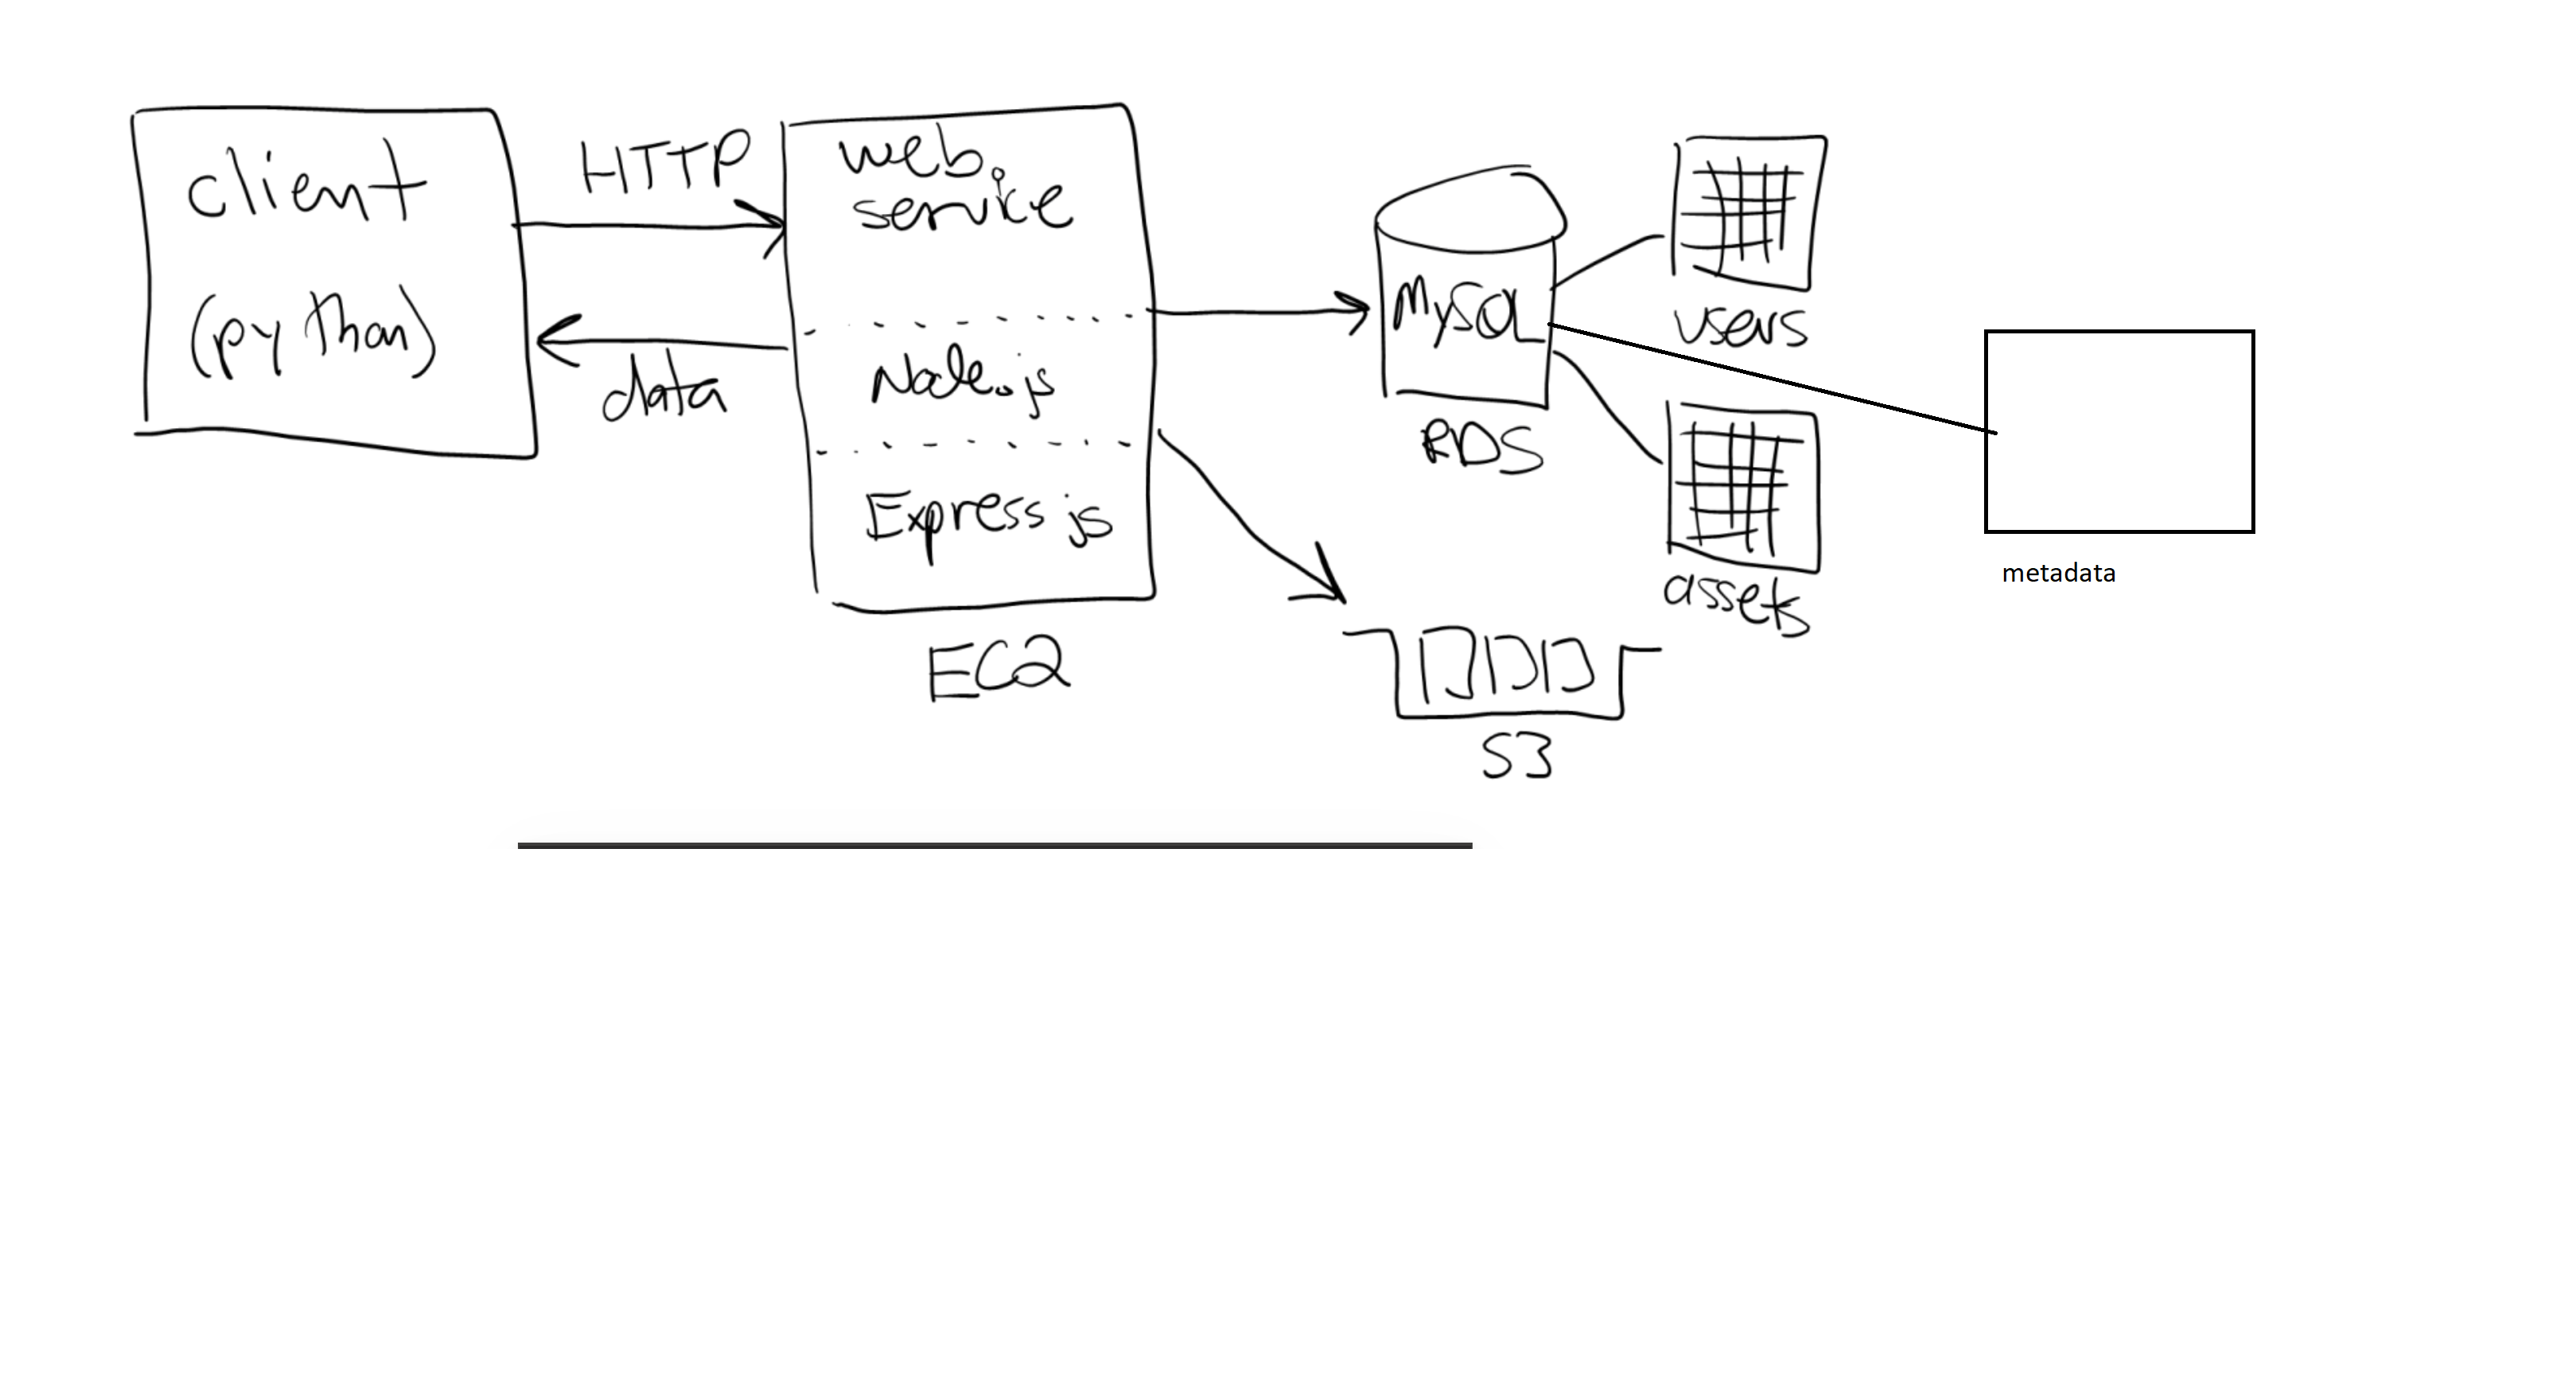 client
(python)
HTTP
data
web
service
Node.js
Express js
EC2
MySQL
RDS
users
assets
metadata
S3